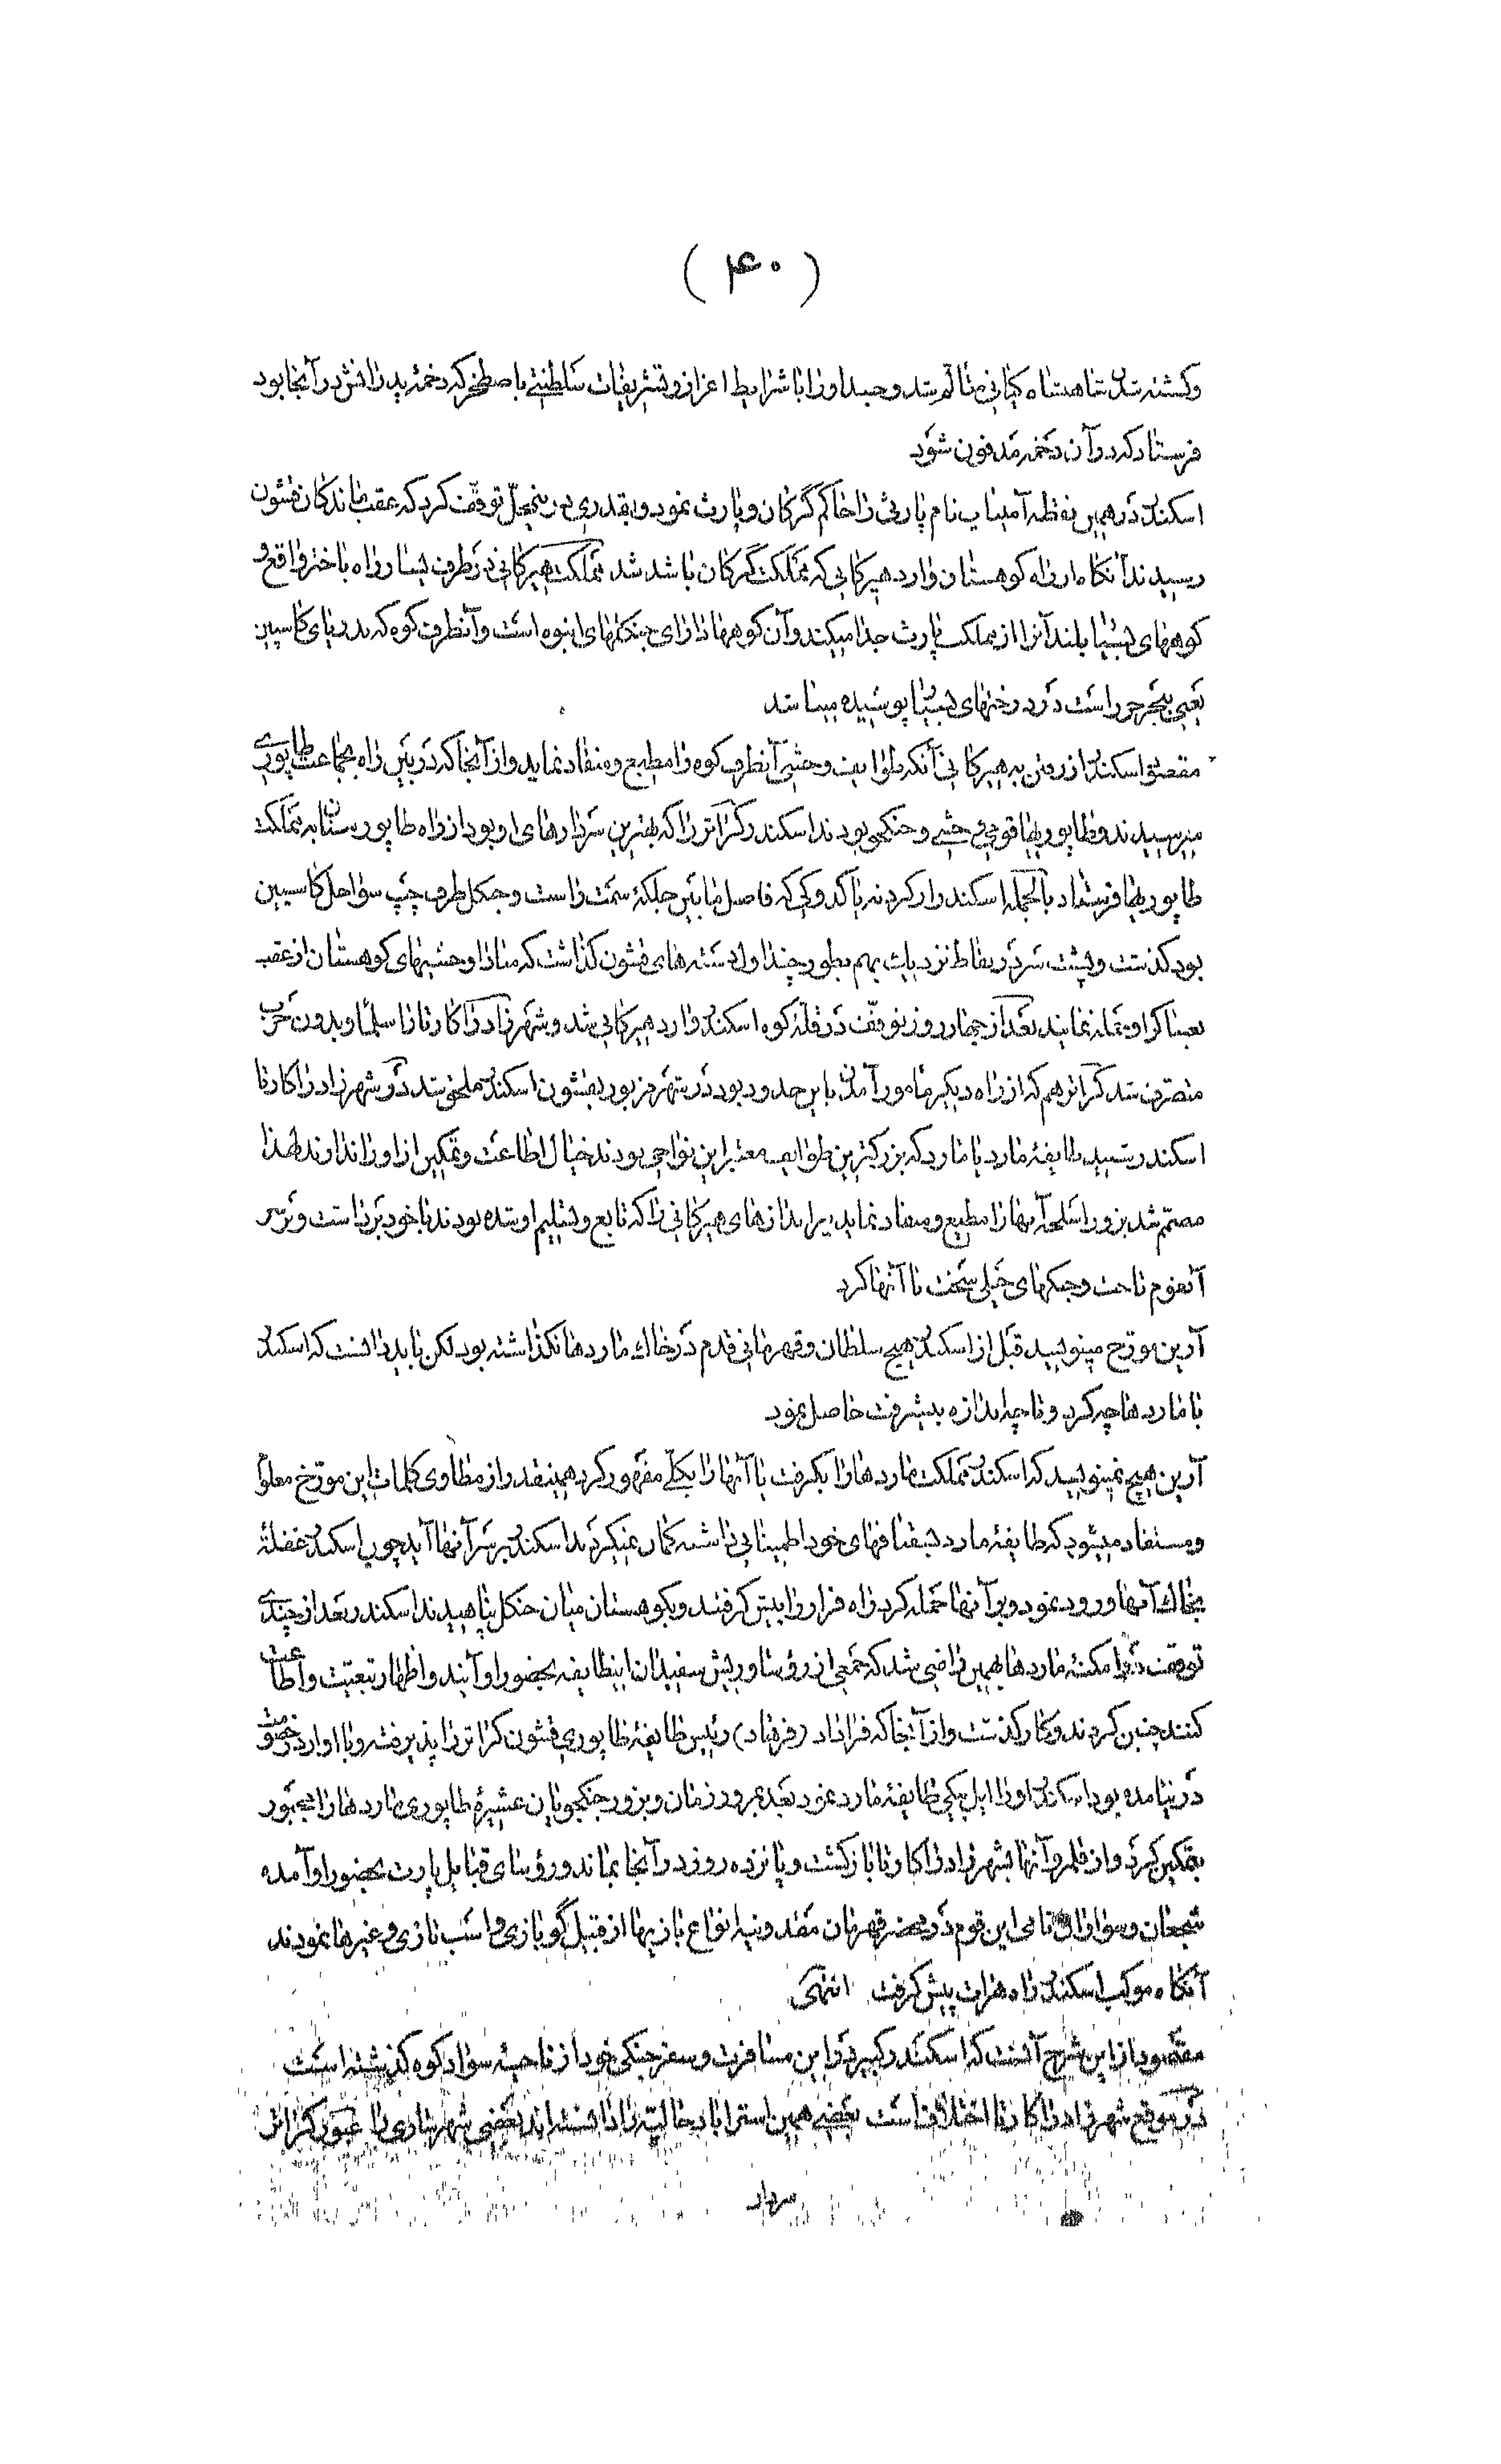 ( ۴۰ )
وکشته شدن شاهنشاه کیانی متألم شد و جسد او را با شرایط اعزاز و تشریفات سلطنتی باصطخر که دخمهٔ پدرانش در آنجا بود
فرستاد که در آن دخمه مدفون شود
اسکندر در همین نقطه آمیناپ نام پارثی را حاکم گرگان و پارث نمود و بقدری در اینمحل توقف کرد که عقب ماندگان قشون
رسیدند آنگاه از راه کوهستان وارد هیرکانی که مملکت گرگان باشد شد مملکت هیرکانی در طرف یسار راه باختر واقع و
کوههای بسیار بلند آنرا از مملکت پارث جدا میکند و آن کوهها دارای جنگلهای انبوه است و آنطرف کوه که بدریای کاسپین
یعنی بحر خزر است در درختهای بسیار پوشیده میباشد
مقصود اسکندر از رفتن به هیرکانی آنکه طوایف وحشی آنطرف کوه را مطیع و منقاد نماید و از آنجا که در بین راه بجماعت طاپوری
میرسیدند و طاپوریها قومی وحشی و جنگی بودند اسکندر کراتر را که بهترین سردارهای او بود از راه طاپورستان به مملکت
طاپوریها فرستاد بالجمله اسکندر از گردنه یا گدوکی که فاصل مابین جلگهٔ سمت راست و جنگل طرف چپ سواحل کاسپین
بود گذشت و پشت سر در نقاط نزدیک بهم بطور چنداول دسته های قشون گذاشت که مبادا وحشیهای کوهستان از عقب
بعساکر او حمله نمایند بعد از چهار روز توقف در قلهٔ کوه اسکندر وارد هیرکانی شد و شهر زادراکارتا را سلماً و بدون حرب
متصرف شد کراتر هم که از راه دیگر مأمور آمدن باین حدود بود در شهر مزبور بقشون اسکندر ملحق شد در شهر زادراکارتا
اسکندر شنید طایفهٔ مارد یا مارد که بزرگترین طوایف معتبر این نواحی بودند خیال اطاعت و تمکین از او را ندارند لهذا
مصمم شد بزور اسلحه آنها را مطیع و منقاد نماید تیراندازهای هیرکانی را که تابع و تسلیم او شده بودند با خود برداشت و بر سر
آنقوم تاخت و جنگهای خیلی سخت با آنها کرد
آرین مورخ مینویسد قبل از اسکندر هیچ سلطان و قهرمانی قدم در خاک ماردها نگذاشته بود لکن باید دانست که اسکندر
با ماردها چه کرد و تا چه اندازه پیشرفت حاصل نمود
آرین هیچ نمینویسد که اسکندر مملکت ماردها را بگرفت یا آنها را بکلی مقهور کرد همینقدر از مطاوی کلمات این مورخ معلوم
و مستفاد میشود که طایفهٔ مارد بسقناقهای خود اطمینانی داشته گمان نمیکردند اسکندر بر سر آنها آید چون اسکندر غفلةً
بخاک آنها ورود نمود و بر آنها حمله کرد راه فرار را پیش گرفتند و بکوهستان میان جنگل پناهیدند اسکندر بعد از چندی
توقف در امکنهٔ ماردها بهمین راضی شد که جمعی از رؤسا و ریش سفیدان اینطایفه بحضور او آیند و اظهار تبعیت و اطاعت
کنند چنین کردند و کار گذشت و از آنجا که فراداد (فرهاد) رئیس طایفهٔ طاپوری قشون کراتر را پذیرفته و با او از در خصومت
در نیامده بود اسکندر او را ایل بیگی طایفهٔ مارد نمود بعد بمرور زمان و بزور جنگجویان عشیرهٔ طاپوری ماردها را مجبور
بتمکین کرد و از قلمرو آنها بشهر زادراکارتا بازگشت و پانزده روز در آنجا بماند و رؤسای قبایل پارت بحضور او آمده
شجعان و سواران نامی این قوم در محضر قهرمان مقدونیه انواع بازیها از قبیل گوبازی و اسب تازی و غیرها نمودند
آنگاه موکب اسکندر راه هرات پیش گرفت انتهی
مقصود از این شرح آنست که اسکندر کبیر در این مسافرت و سفر جنگی خود از ناحیهٔ سوادکوه گذشته است
در موقع شهر زادراکارتا اختلاف است بعضی همین استراباد حالیه را دانسته اند بعضی شهر ساری را عبور کراتر
سردار